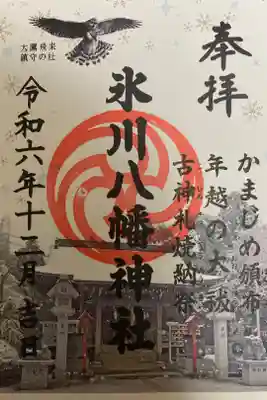 奉拝
かまじめ頒布
年越の大祓
古神札焼納祭
氷川八幡神社
大鷹飛来
鎮守の社
令和六年十二月吉日